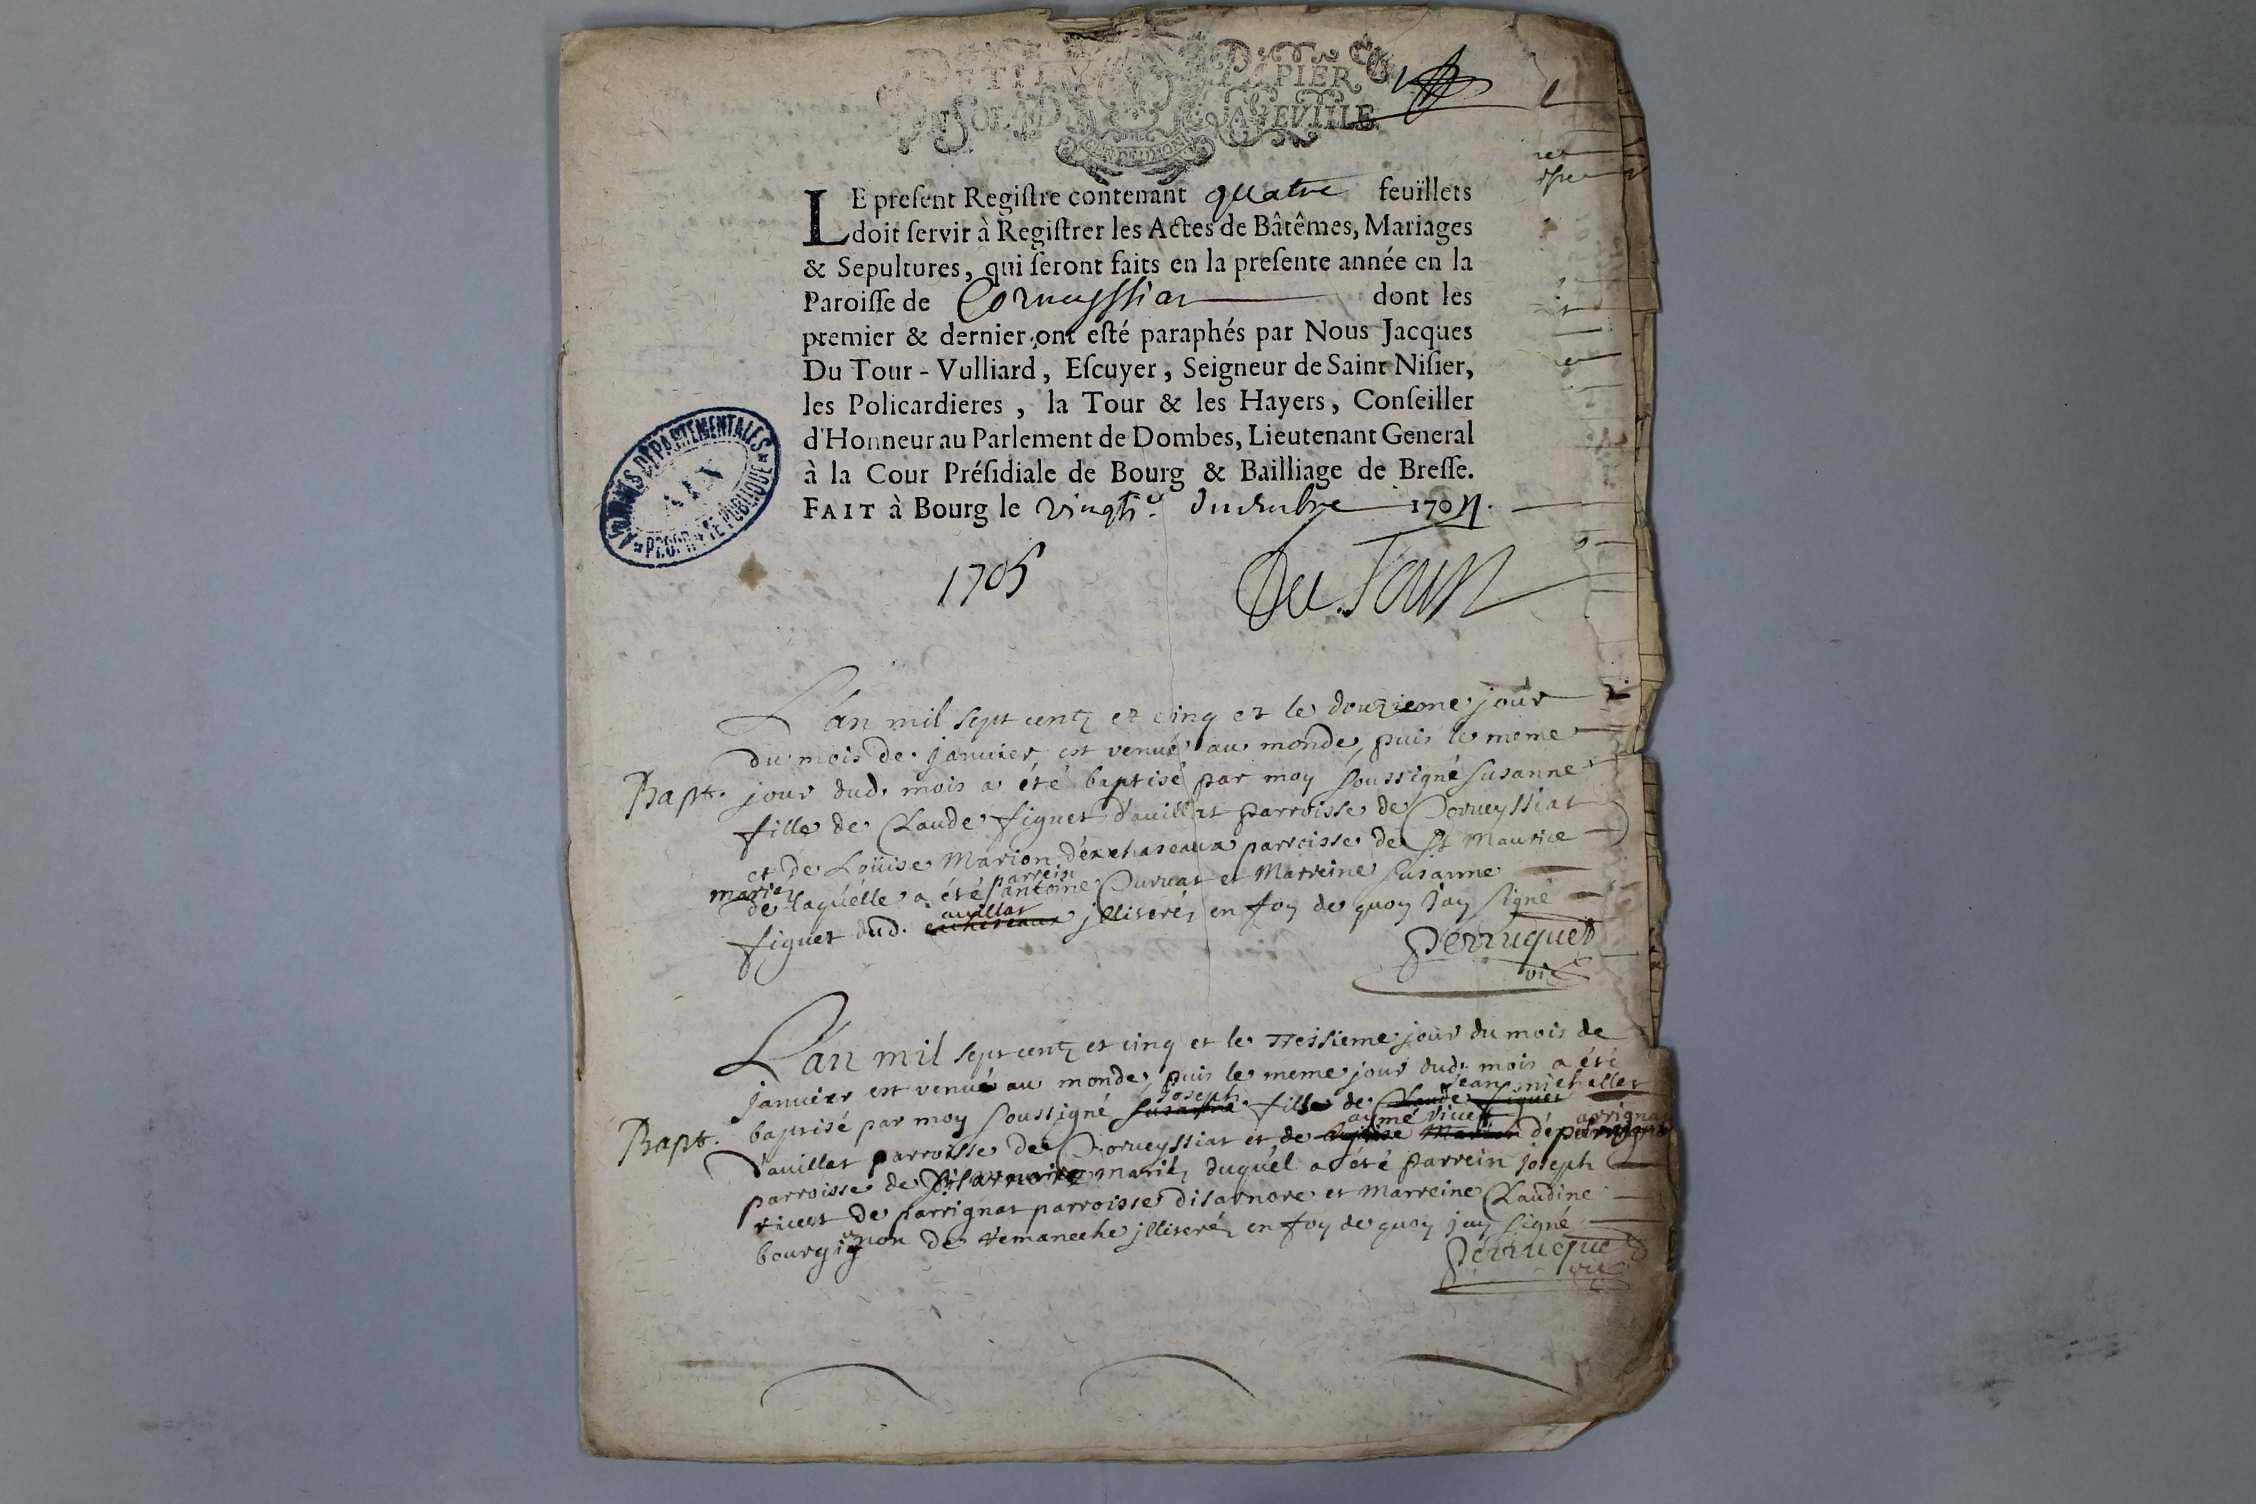 PETIT PAPIER
SOL LA FEUILLE
LE preſent Regiſtre contenant quatre feuïllets
doit ſervir à Regiſtrer les Actes de Bâtêmes, Mariages
& Sepultures, qui ſeront faits en la preſente année en la
Paroiſſe de Corveyssiat dont les
premier & dernier ont eſté paraphés par Nous Jacques
Du Tour - Vulliard, Eſcuyer, Seigneur de Saint Niſier,
les Policardieres, la Tour & les Hayers, Conſeiller
d'Honneur au Parlement de Dombes, Lieutenant General
à la Cour Préſidiale de Bourg & Bailliage de Breſſe.
FAIT à Bourg le vingt 170
ARCHIVES DEPARTEMENTALES
AIN
PROPRIÉTÉ PUBLIQUE
1705
Du Tour
L'an mil sept centz et cinq et le douzieme jour
du mois de janvier est venue au monde, puis le meme
Bapt. jour dud. mois a été baptisé par moy soussigné Susanne
fille de Claude figuet d'auillat parroisse de Corveyssiat
et de Loüise Marion d'exchaseaux parroisse de St Maurice
mariez parrein
de laquélle a été antoine Curvat et Marreine Susanne
auillat
figuet dud. illiterés en foy de quoy jay signé
Perruquet
vic
L'an mil sept centz et cinq et le tressieme jour du mois de
janvier est venué au monde, puis le meme jour dud. mois a été
joseph jean michallet
Bapt. baptisé par moy soussigné Susanne fille de Claude figuet
aymé vicet arrignat
d'auillat parroisse de Corveyssiat et de Marion
parroisse de mariéz duquél a été parrein joseph
vicet de parrignat parroisse disarnore et Marreine Claudine
bourgignon de illiterés en foy de quoy jay signé
Perruquet
vic